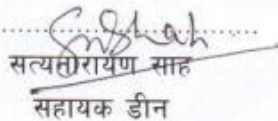 सत्यनारायण साह
सहायक डीन